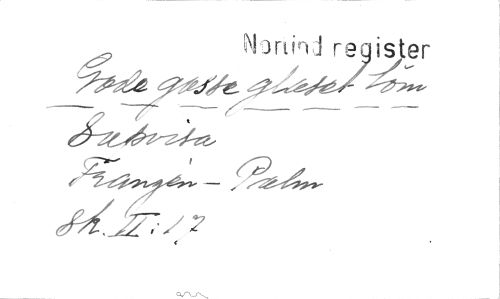 Norlind register
Gode gosse glaset töm
Supvisa
Frangén - Palm
sk. II: 17